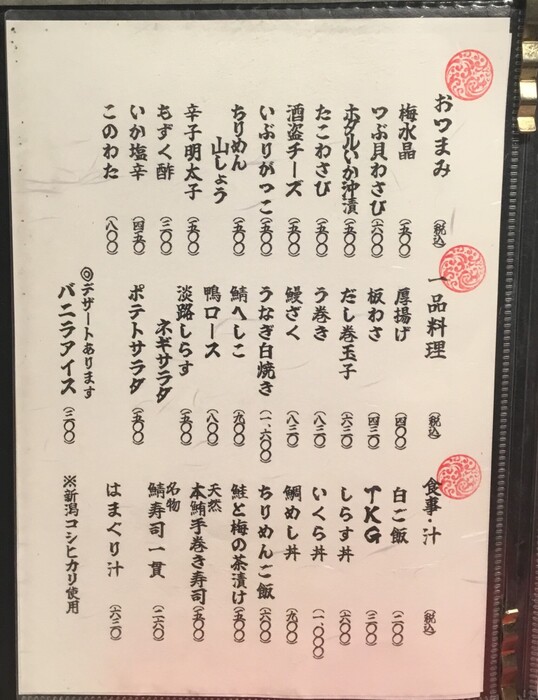 おつまみ (税込)
梅水晶 (五〇〇)
つぶ貝わさび (六〇〇)
ホタルいか沖漬 (五〇〇)
たこわさび (五〇〇)
酒盗チーズ (五〇〇)
いぶりがっこ (五〇〇)
ちりめん
山しょう (五〇〇)
辛子明太子 (五〇〇)
もずく酢 (三〇〇)
いか塩辛 (四五〇)
このわた (八〇〇)
一品料理 (税込)
厚揚げ (四〇〇)
板わさ (四三〇)
だし巻玉子 (六三〇)
う巻き (八三〇)
鰻ざく (八三〇)
うなぎ白焼き (一、六〇〇)
鯖へしこ (九〇〇)
鴨ロース (八〇〇)
淡路しらす
ネギサラダ (五〇〇)
ポテトサラダ (五〇〇)
◎デザートあります
バニラアイス (三〇〇)
食事・汁 (税込)
白ご飯 (二〇〇)
TKG (三〇〇)
しらす丼 (六〇〇)
いくら丼 (一、〇〇〇)
鯛めし丼 (九〇〇)
ちりめんご飯 (六〇〇)
鮭と梅の茶漬け (五〇〇)
天然
本鮪手巻き寿司 (五〇〇)
名物
鯖寿司一貫 (二六〇)
はまぐり汁 (六三〇)
※新潟コシヒカリ使用